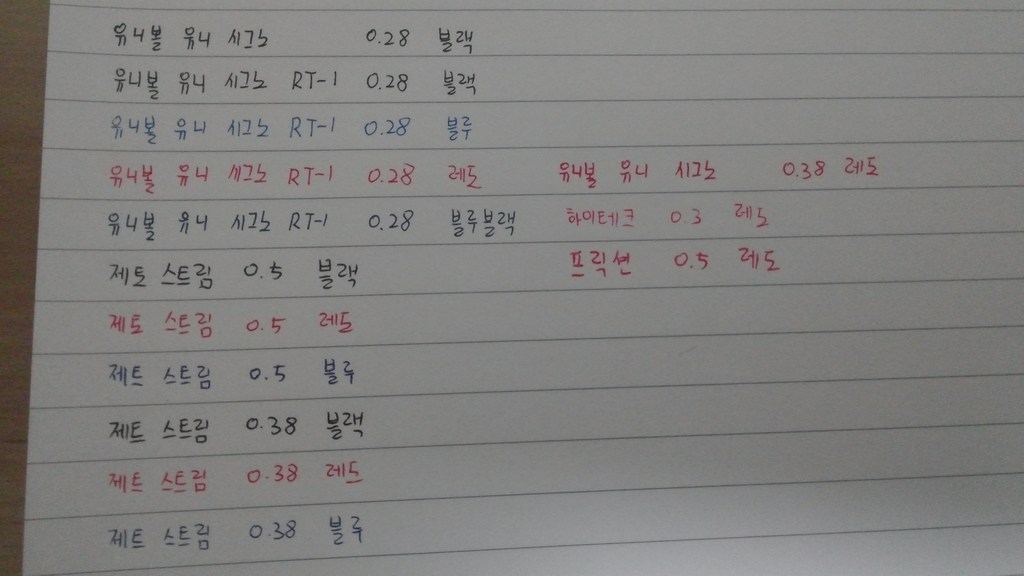 유니볼 유니 시그노 0.28 블랙
유니볼 유니 시그노 RT-1 0.28 블랙
유니볼 유니 시그노 RT-1 0.28 블루
유니볼 유니 시그노 RT-1 0.28 레드
유니볼 유니 시그노 RT-1 0.28 블루블랙
제트 스트림 0.5 블랙
제트 스트림 0.5 레드
제트 스트림 0.5 블루
제트 스트림 0.38 블랙
제트 스트림 0.38 레드
제트 스트림 0.38 블루
유니볼 유니 시그노 0.38 레드
하이테크 0.3 레드
프릭션 0.5 레드